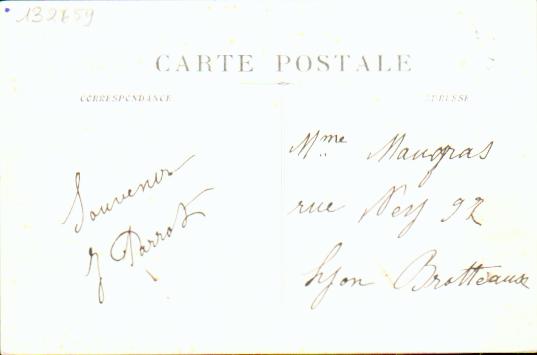 132659
CARTE POSTALE
CORRESPONDANCE
ADRESSE
Souvenir
J Parrot
Mme Maugras
rue Ney 92
Lyon Brotteaux